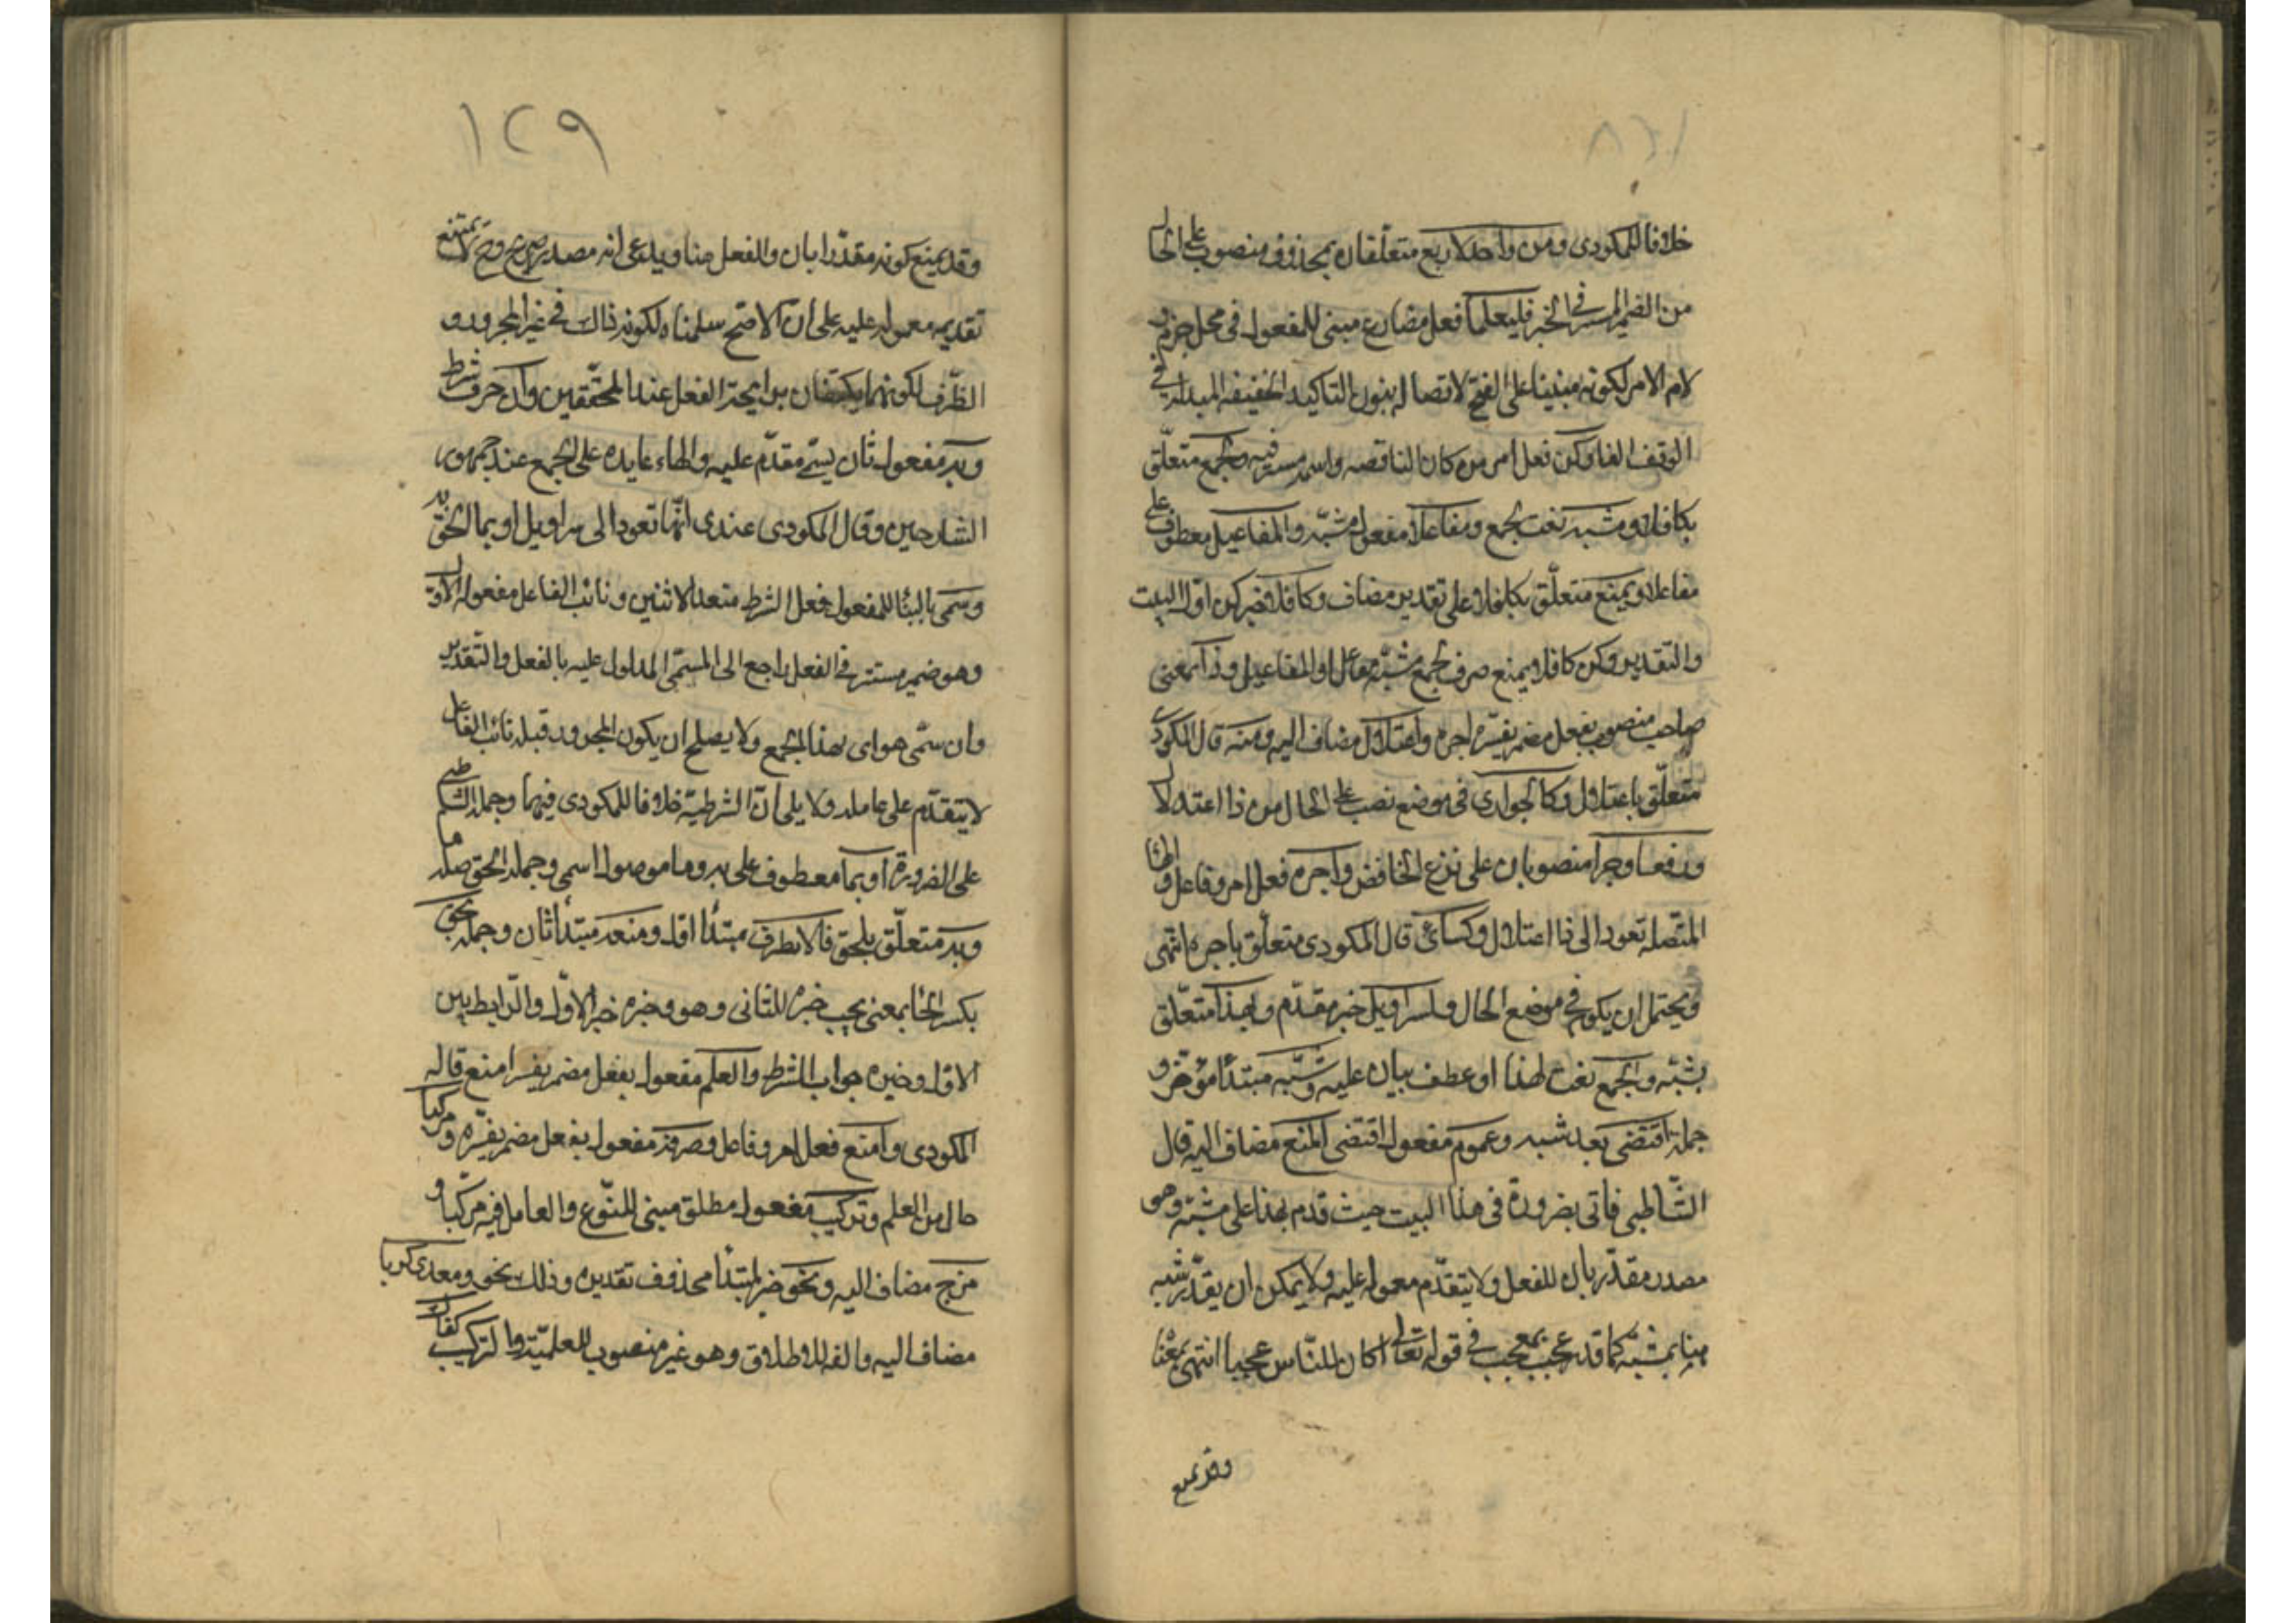 خلافا للمكودى ومن واحد لاربع متعلقان بمحذوف منصوب على الحال
من الضمير المستتر فى الخبر فليعلما فعل مضارع مبنى للمفعول فى محل جزم
لام الامر لكونه مبنيا على الفتح لاتصاله بنون التاكيد الخفيفه المبدله فى
الوقف الفا وكن فعل امر من كان الناقصه واسمه مستتر فيه ولجمع متعلق
بكافلا ومشبه نعت لجمع ومفاعلا مفعول مشبه والمفاعيل معطوف على
مفاعلا وبمنع متعلق بكافلا على تقدير مضاف وكافلا خبر كن اول البيت
والتقدير وكن كافلا بمنع صرف لجمع مشبه مفاعل او المفاعيل وذا بمعنى
صاحب منصوب بفعل مضمر يفسره اجره واعتلال مضاف اليه ومنه قال المكودى
متعلق باعتلال وكالجوارى فى موضع نصب على الحال من ذا اعتلال
ورفعا وجرا منصوبان على نزع الخافض واجره فعل امر وفاعل والها
المتصله تعود الى ذا اعتلال وكسارى قال المكودى متعلق باجره انتهى
ويحتمل ان يكون فى موضع الحال ولسراويل خبر مقدم وبهذا متعلق
بشبه والجمع نعت لهذا او عطف بيان عليه وشبه مبتدأ مؤخر و
جملة اقتضى بعد شبه وعموم مفعول اقتضى المنع مضاف اليه قال
الشاطبى فاتى بضرورة فى هذا البيت حيث قدم بهذا على مشبه وهو
مصدر مقدر بان للفعل ولا يتقدم معموله عليه ولا يمكن ان يقدر شبه
هنا بمشبه كما قدر عجب بمعجب فى قوله تعالى اكان للناس عجبا انتهى بمعناه
وقد يمنع
١٢٩
وقد يمنع كونه مقدرا بان والفعل هنا ويدعى انه مصدر صريح وح لا يمتنع
تقديم معموله عليه على ان الاصح سلمناه لكونه ذلك فى غير المجرور و
الظرف لكونهما يكتفان برايحة الفعل عند المحققين وان حرف شرط
وبه مفعول ثان بسمى مقدم عليه والهاء عايده على الجمع عند جمهور
الشارحين وقال المكودى عندى انها تعود الى سراويل او بما الحق به
وسمى بالبنا للمفعول فعل الشرط متعد لاثنين ونائب الفاعل مفعوله الاول
وهو ضمير مستتر فى الفعل راجع الى المسمى المدلول عليه بالفعل والتقدير
وان سمى هو اى بهذا الجمع ولا يصلح ان يكون المجرور قبله نائب الفاعل
لا يتقدم على عامله ولا يلى ان الشرطية خلافا للمكودى فيهما وحمله الشاطبى
على الضرورة او بما معطوف على به وما موصول اسمى وجملة الحق صلة ما
وبه متعلق بلحق فالانصراف مبتدأ اول ومنعه مبتدأ ثان وجملة يحق
بكسر الحا بمعنى يجب خبره للثانى وهو وخبره خبر الاول والرابط بين
الاول وخبره جواب الشرط والعلم مفعول بفعل مضمر يفسر امنع قاله
المكودى وامنع فعل امر وفاعل وصرفه مفعول بفعل مضمر يفسره ومركبا
حال من العلم وتركيب مفعول مطلق مبنى للنوع والعامل فيه مركبا و
مزج مضاف اليه ونحو خبر لمبتدأ محذوف تقديره وذلك نحو ومعدى كربا
مضاف اليه والفه للاطلاق وهو غير منصوب للعلمية والتركيب كذاك